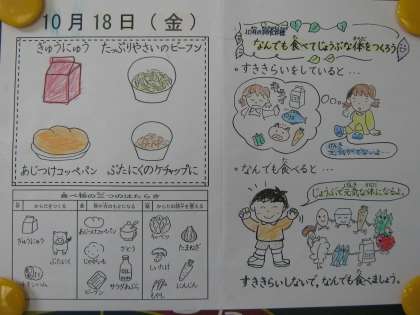 10月18日(金)
ぎゅうにゅう たっぷりやさいのビーフン
あじつけコッペパン ぶたにくのケチャップに
食べ物の三つのはたらき
ぎゅうにゅう
ぶたにく
あじつけコッペパン
じゃがいも
ビーフン
さとう
サラダあぶら
キャベツ
しいたけ
もやし
たまねぎ
にんじん
なんでも食べてじょうぶな体をつくろう
・すききらいをしていると…
・なんでも食べると…
じょうぶで元気な体になるよ。
すききらいしないで、なんでも食べましょう。